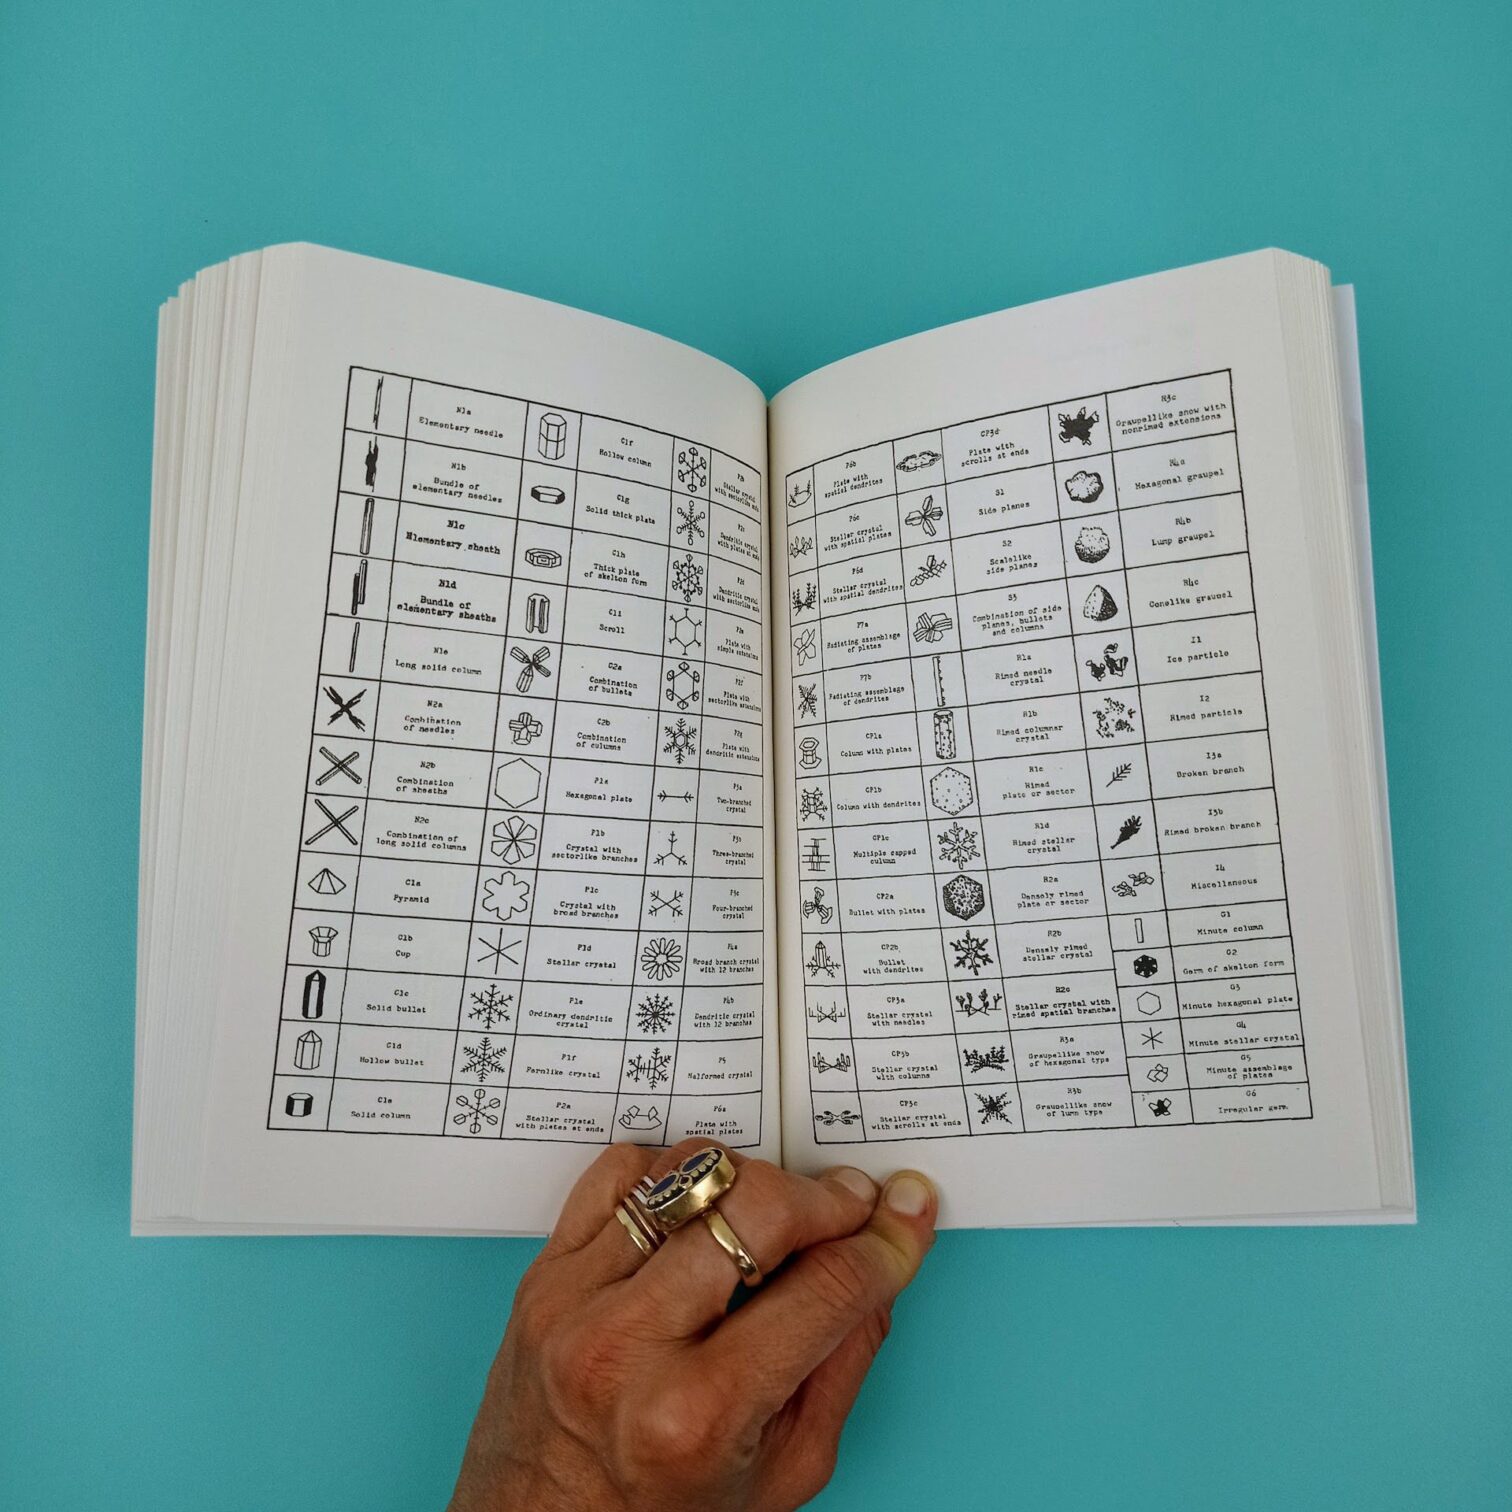 N1a
Elementary needle
N1b
Bundle of
elementary needles
N1c
Elementary sheath
N1d
Bundle of
elementary sheaths
N1e
Long solid column
N2a
Combination
of needles
N2b
Combination
of sheaths
N2c
Combination of
long solid columns
C1a
Pyramid
C1b
Cup
C1c
Solid bullet
C1d
Hollow bullet
C1e
Solid column
C1f
Hollow column
C1g
Solid thick plate
C1h
Thick plate
of skelton form
C1i
Scroll
C2a
Combination
of bullets
C2b
Combination
of columns
P1a
Hexagonal plate
P1b
Crystal with
sectorlike branches
P1c
Crystal with
broad branches
P1d
Stellar crystal
P1e
Ordinary dendritic
crystal
P1f
Fernlike crystal
P2a
Stellar crystal
with plates at ends
P2b
Stellar crystal
with sectorlike ends
P2c
Dendritic crystal
with plates at ends
P2d
Dendritic crystal
with sectorlike ends
P2e
Plate with
simple extensions
P2f
Plate with
sectorlike extensions
P2g
Plate with
dendritic extensions
P3a
Two-branched
crystal
P3b
Three-branched
crystal
P3c
Four-branched
crystal
P4a
Broad branch crystal
with 12 branches
P4b
Dendritic crystal
with 12 branches
P5
Malformed crystal
P6a
Plate with
spatial plates
P6b
Plate with
spatial dendrites
P6c
Stellar crystal
with spatial plates
P6d
Stellar crystal
with spatial dendrites
P7a
Radiating assemblage
of plates
P7b
Radiating assemblage
of dendrites
CP1a
Column with plates
CP1b
Column with dendrites
CP1c
Multiple capped
column
CP2a
Bullet with plates
CP2b
Bullet
with dendrites
CP3a
Stellar crystal
with needles
CP3b
Stellar crystal
with columns
CP3c
Stellar crystal
with scrolls at ends
CP3d
Plate with
scrolls at ends
S1
Side planes
S2
Scalelike
side planes
S3
Combination of side
planes, bullets
and columns
R1a
Rimed needle
crystal
R1b
Rimed columnar
crystal
R1c
Rimed
plate or sector
R1d
Rimed stellar
crystal
R2a
Densely rimed
plate or sector
R2b
Densely rimed
stellar crystal
R2c
Stellar crystal with
rimed spatial branches
R3a
Graupellike snow
of hexagonal type
R3b
Graupellike snow
of lump type
R3c
Graupellike snow with
nonrimed extensions
R4a
Hexagonal graupel
R4b
Lump graupel
R4c
Conelike graupel
I1
Ice particle
I2
Rimed particle
I3a
Broken branch
I3b
Rimed broken branch
I4
Miscellaneous
G1
Minute column
G2
Germ of skelton form
G3
Minute hexagonal plate
G4
Minute stellar crystal
G5
Minute assemblage
of plates
G6
Irregular germ